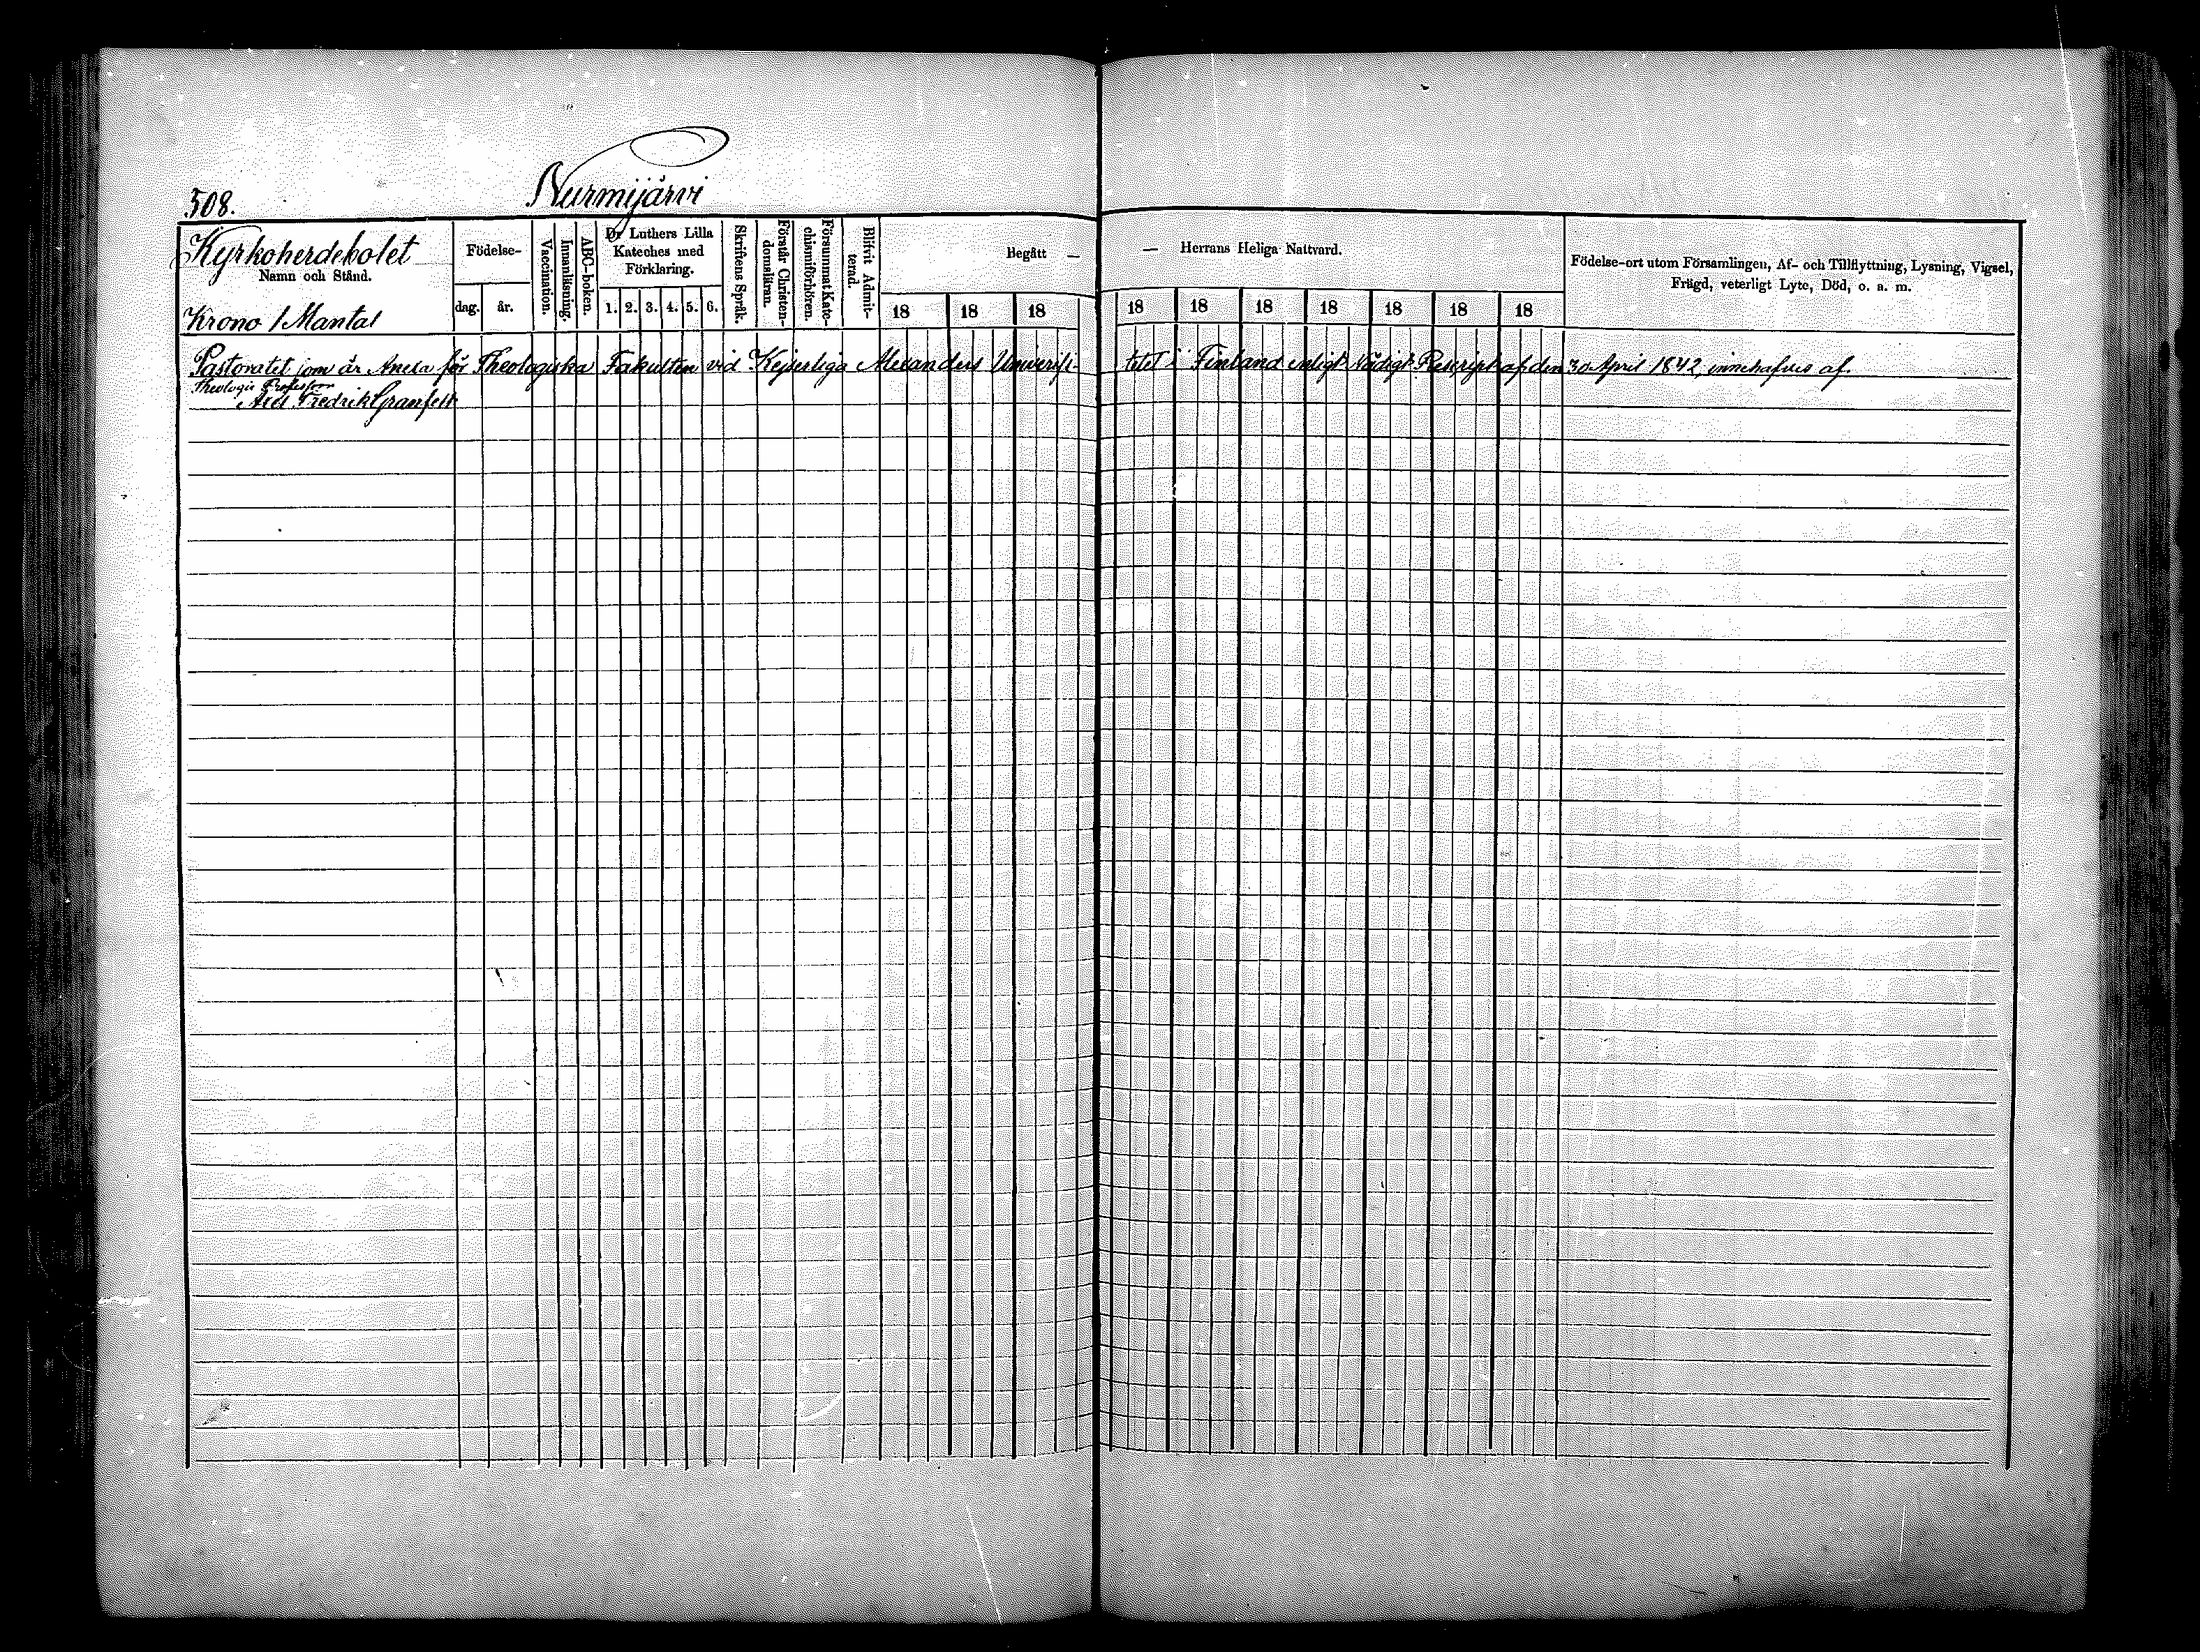 Nurmijärvi
508.
Kyrkoherdebolet
Namn och Stånd.
Krono 1 Mantal
Födelse-
dag. år.
Vaccination.
Innanläsning.
ABC-boken.
Dr Luthers Lilla
Kateches med
Förklaring.
1. 2. 3. 4. 5. 6.
Skriftens Språk.
Förstår Christen-
domsläran.
Försummat Kate-
chismiförhören.
Blifvit Admit-
terad.
Begått — — Herrans Heliga Nattvard.
18 18 18 18 18 18 18 18 18 18
Födelse-ort utom Församlingen, Af- och Tillflyttning, Lysning, Vigsel,
Frägd, veterligt Lyte, Död, o. a. m.
Pastoratet som är Anexa för Theologiska Fakulten vid Kejserliga Alexanders Universi- tetet i Finland enligt Nådigt Rescript af den 30 April 1842, innehafves af.
Theologie Professorn
Axel Fredrik Granfelt